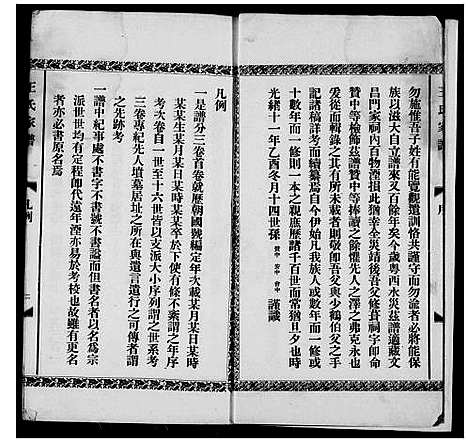 勿施惟吾子姓有能覽觀遺訓恪共謹守而勿諼者必將能保
族以滋大自立譜來又百餘年矣今歲粵西水災茲譜適藏文
昌門家祠內百物湮損此猶幸全災靖後吾父修葺祠宇卽命
贊中等檢飾茲譜贊中等捧讀之餘懼先人之澤之弗克永也
爰從而輯錄之其有所未載者則敬卽吾父與少鶴伯父之手
記諸稿詳考而續纂焉自今伊始凡我族人或數年而一修或
十數年而一修則一本之親庶歷諸千百世而常猶旦夕也時
光緒十一年乙酉冬月十四世孫 贊中 宏中 會中 謹識
王氏家譜 序
王氏家譜 凡例 一
凡例
一是譜分三卷首卷就歷朝國號編定年次載某月某日某時
某某生某月某日某時某某卒於下使有條不紊謂之年序
考次卷自一世至十六世皆以支派大小序列謂之世系考
三卷專紀先人墳墓居址之所在與遺言遺行之可傳者謂
之先跡考
一譜中紀事處不書字不書號不書諡而但書名者以名為宗
派世世均有定程卽代遠年湮亦易於考校也故雖有更名
者亦必書原名焉